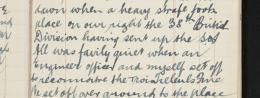 down when a heavy strafe took
place on our right the 38th British
Division having sent up the SOS
All was fairly quiet when an
Engineer officer and myself set off
to reconnoitre the Trois Tilleuls Line
We set off over around to the place